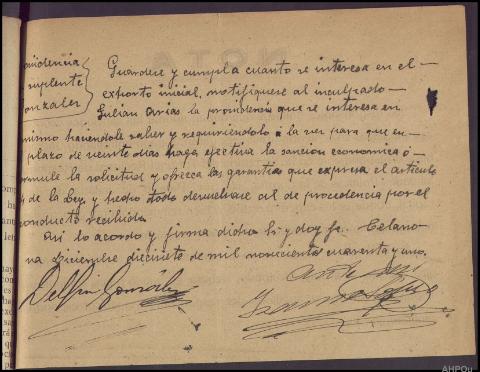 Providencia
suplente
Gonzalez
Guardese y cumpla cuanto se interesa en el
exhorto inicial, notifíquese al inculpado
Julian Arias la providencia que se interesa en
mismo haciendole saber y requiriendolo a la vez para que en
plazo de veinte dias haga efectiva la sancion economica ó
formule la solicitud y ofrezca las garantias que expresa el articulo
de la Ley, y hecho todo devuelvase al de procedencia por el
conducto recibido
Asi lo acordo y firma dicho Sr. y doy fe. Celano
va Diciembre diecisiete de mil novecientos cuarenta y uno.
Delfin Gonzalez
Ante mi
AHPOu